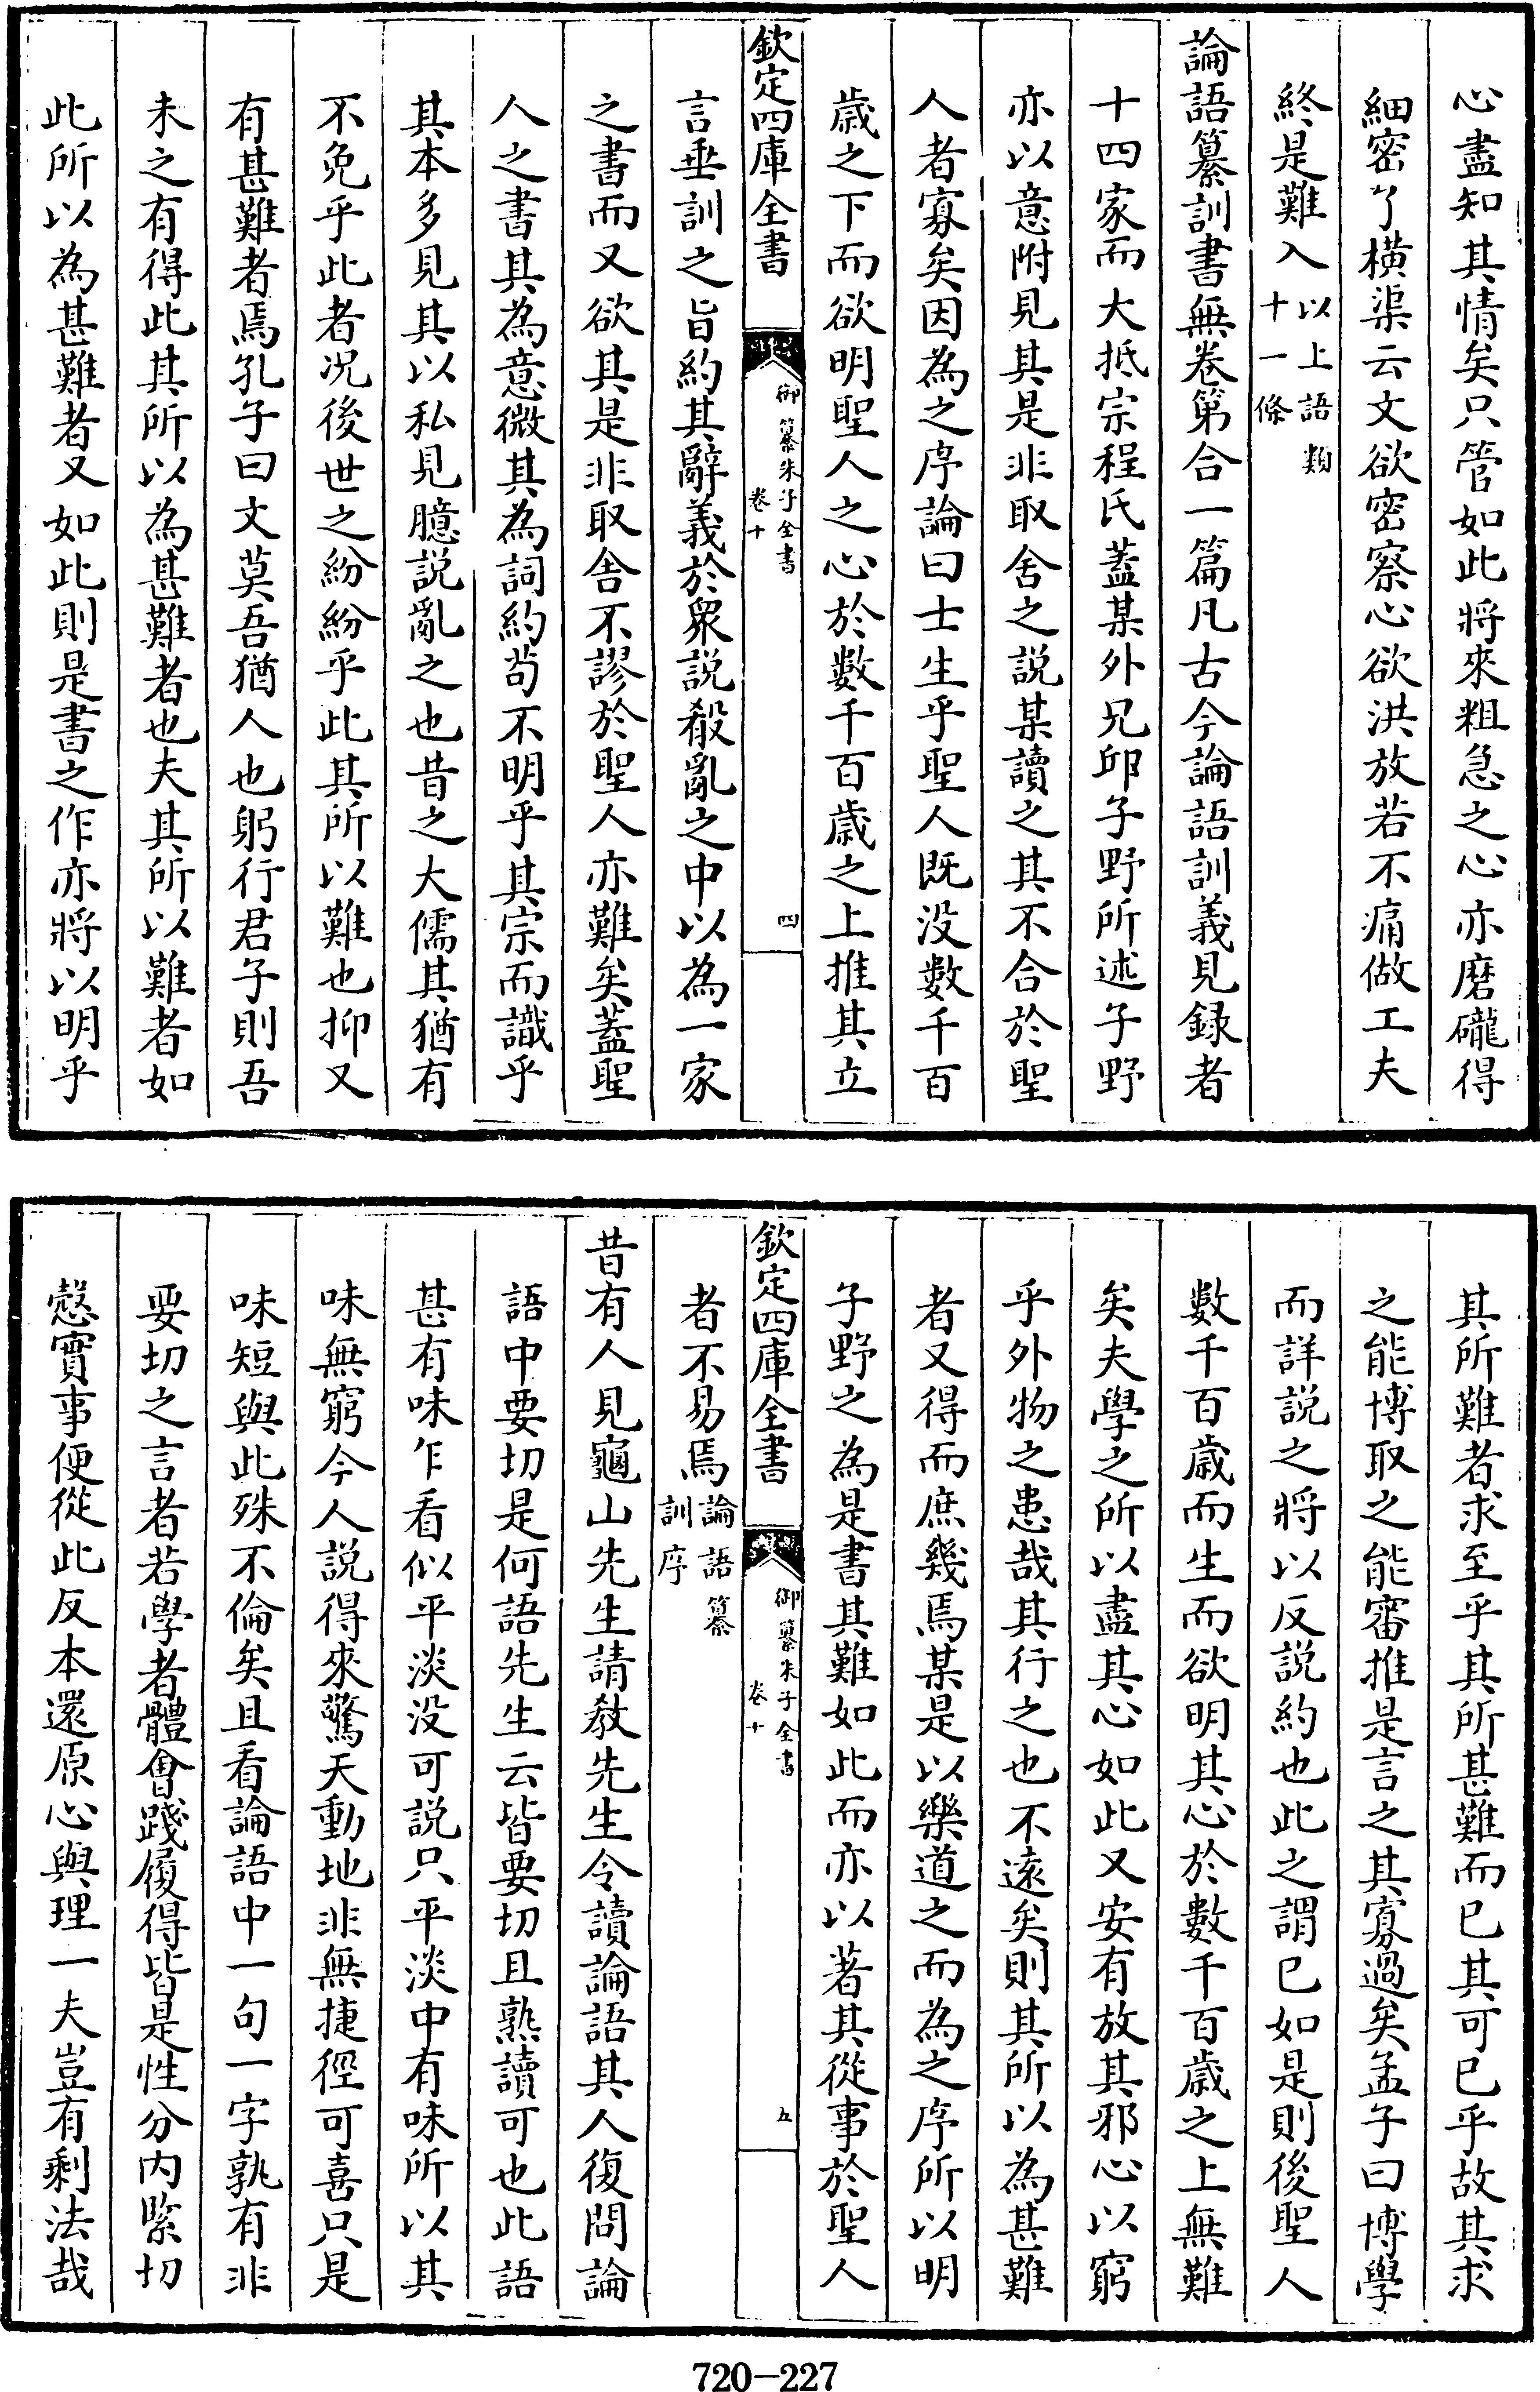 心盡知其情矣只管如此將來粗急之心亦磨礲得
細密了横渠云文欲密察心欲洪放若不痛做工夫
終是難入以上語類十一條
論語纂訓書無卷第合一篇凡古今論語訓義見録者
十四家而大抵宗程氏葢某外兄邱子野所述子野
亦以意附見其是非取舍之説某讀之其不合於聖
人者寡矣因為之序論曰士生乎聖人既没數千百
歳之下而欲明聖人之心於數千百歳之上推其立
欽定四庫全書
御纂朱子全書
卷十
四
言垂訓之旨約其辭義於衆説殽亂之中以為一家
之書而又欲其是非取舎不謬於聖人亦難矣葢聖
人之書其為意微其為詞約茍不明乎其宗而識乎
其本多見其以私見臆説亂之也昔之大儒其猶有
不免乎此者况後世之紛紛乎此其所以難也抑又
有甚難者焉孔子曰文莫吾猶人也躬行君子則吾
未之有得此其所以為甚難者也夫其所以難者如
此所以為甚難者又如此則是書之作亦將以明乎
其所難者求至乎其所甚難而已其可已乎故其求
之能博取之能審推是言之其寡過矣孟子曰博學
而詳説之將以反説約也此之謂已如是則後聖人
數千百歳而生而欲明其心於數千百歳之上無難
矣夫學之所以盡其心如此又安有放其邪心以窮
乎外物之患哉其行之也不逺矣則其所以為甚難
者又得而庶幾焉某是以樂道之而為之序所以明
子野之為是書其難如此而亦以著其從事於聖人
欽定四庫全書
御纂朱子全書
卷十
五
者不易焉論語纂訓序
昔有人見龜山先生請教先生令讀論語其人復問論
語中要切是何語先生云皆要切且熟讀可也此語
甚有味乍看似平淡没可説只平淡中有味所以其
味無窮今人説得來驚天動地非無捷徑可喜只是
味短與此殊不倫矣且看論語中一句一字孰有非
要切之言者若學者體會踐履得皆是性分内緊切
慤實事便從此反本還原心與理一夫豈有剩法哉
720-227